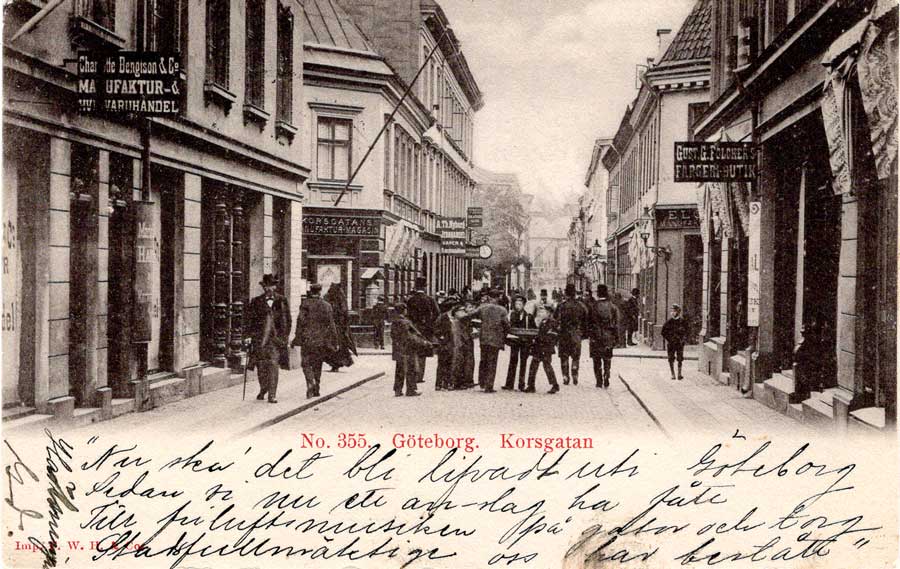 Charlotte Bengtson & Co.
MANUFAKTUR-&
HVITVARUHANDEL
KORSGATANS
MANUFAKTUR-MAGASIN
GUST. G. FOLCHER'S
FÄRGERI-BUTIK
No. 355. Göteborg. Korsgatan
"Nu ska' det bli lifvadt uti Göteborg
Sedan vi nu ett an-slag ha fått
Till friluftsmusiken på gator och torg
Stadsfullmäktige oss har bestått"
Imp. W. H. & Co.